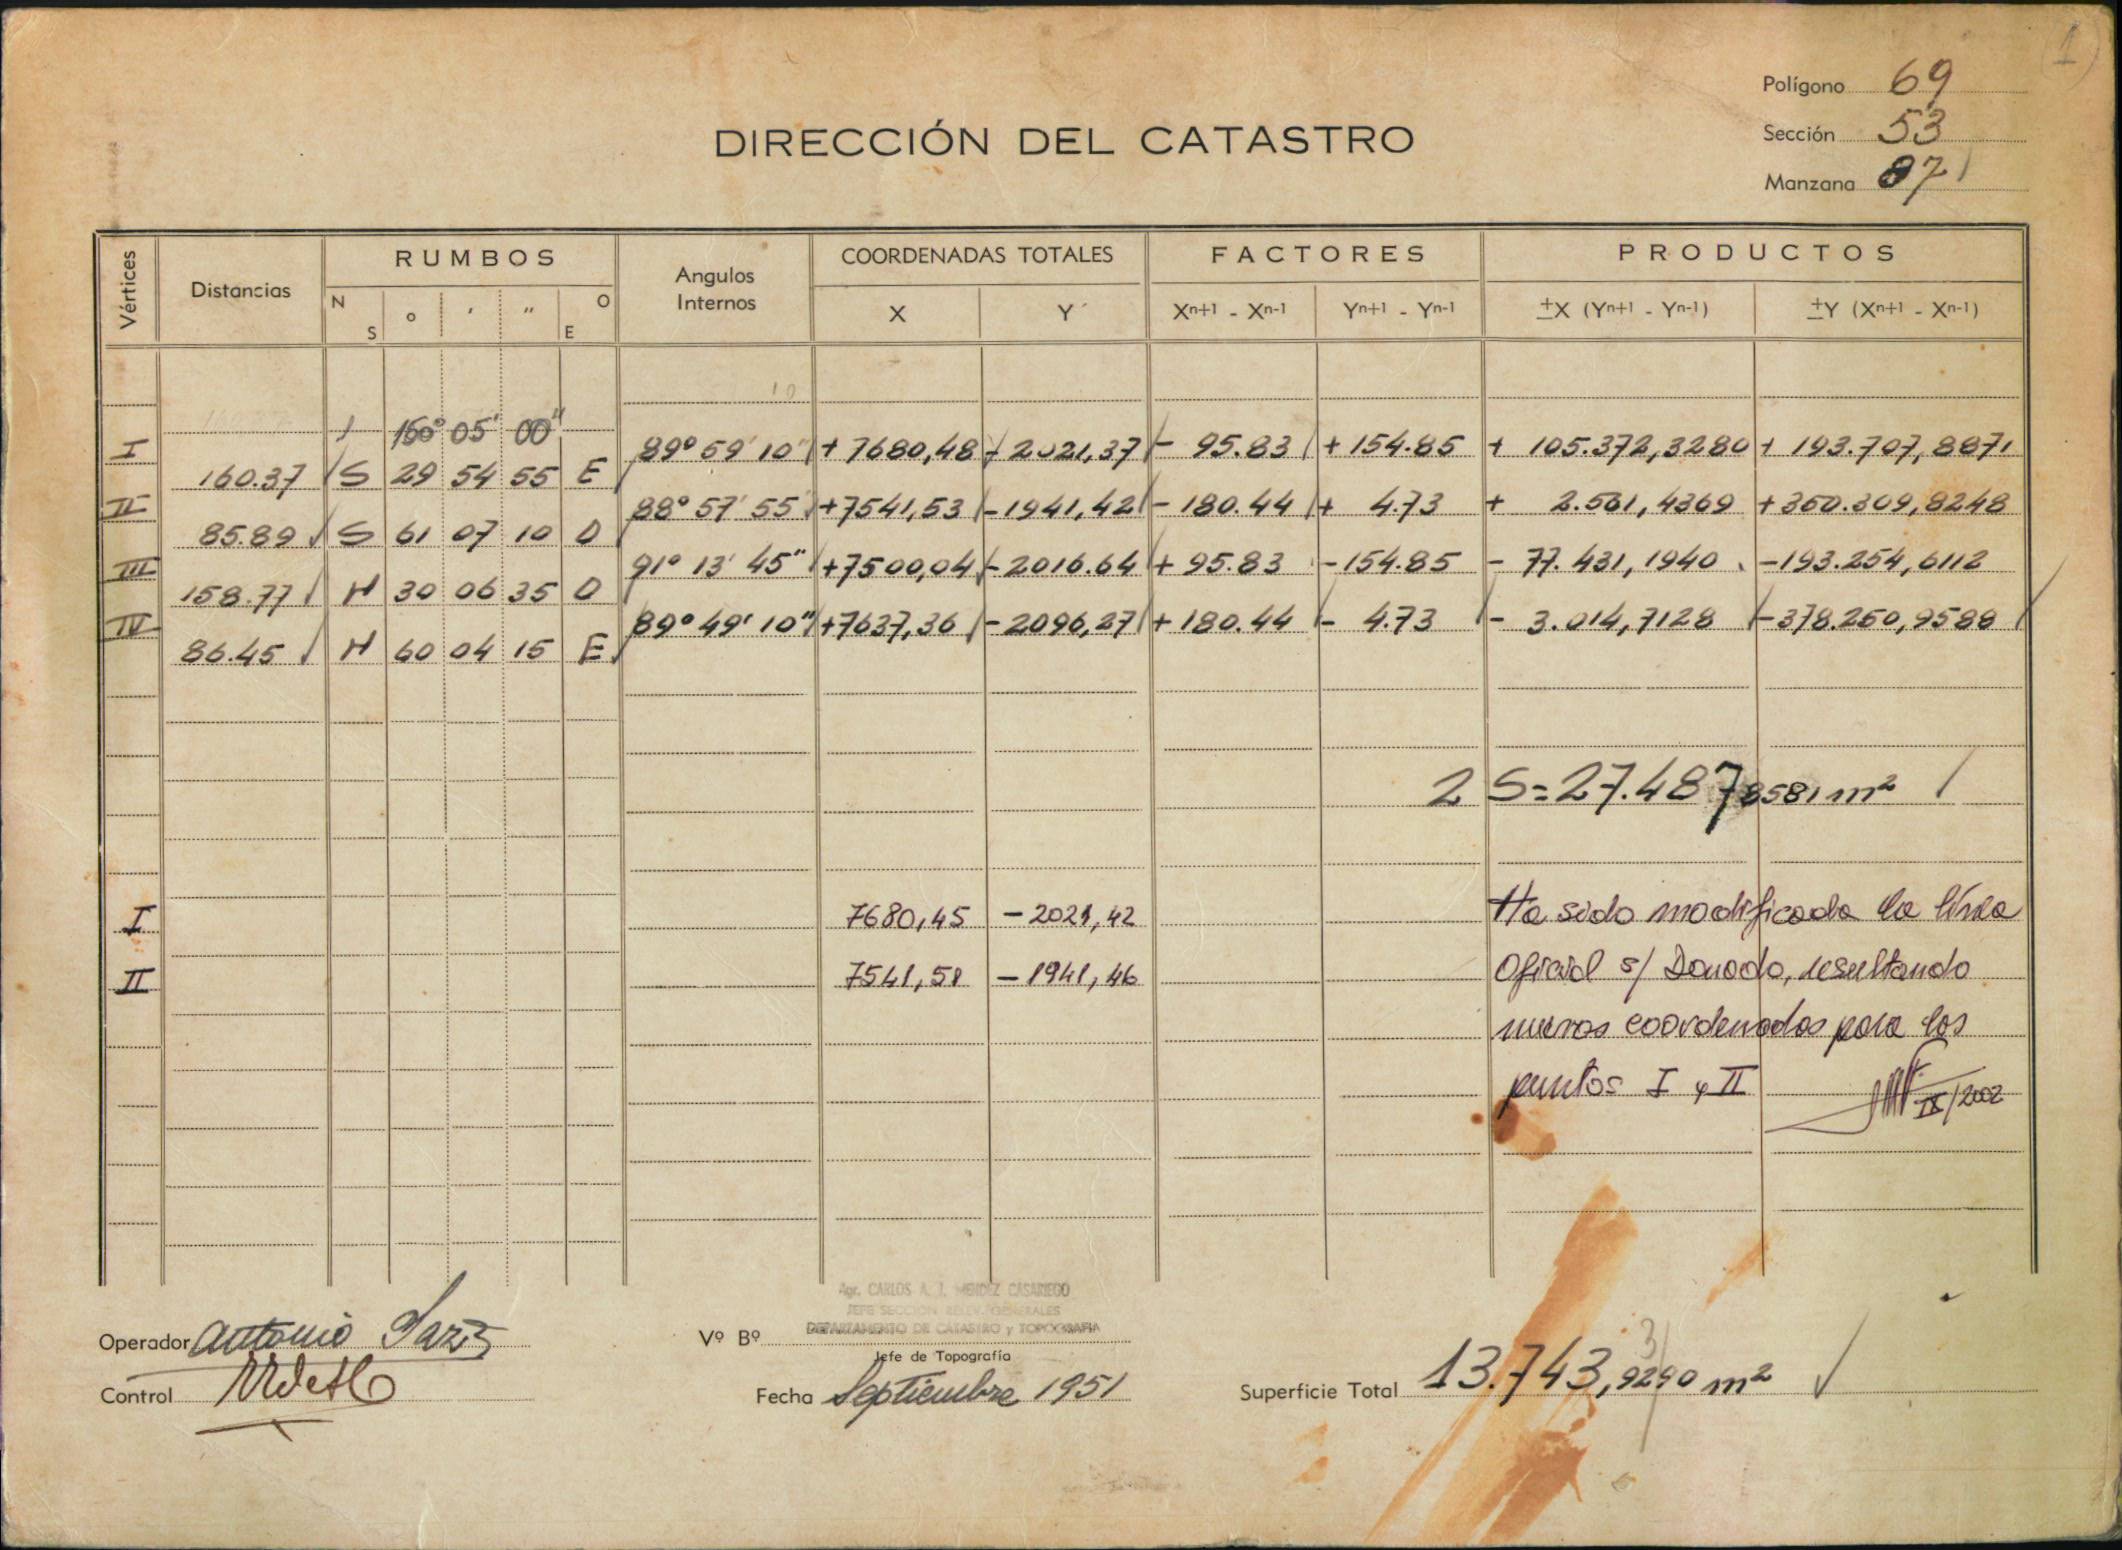 1
Polígono 69
Sección 53
Manzana 87
DIRECCIÓN DEL CATASTRO
Vértices Distancias RUMBOS Angulos Internos COORDENADAS TOTALES FACTORES PRODUCTOS
N S o ' " O E X Y Xn+1 - Xn-1 Yn+1 - Yn-1 ±X (Yn+1 - Yn-1) ±Y (Xn+1 - Xn-1)
05' 00"
I 89° 59' 10" + 7680,48 - 2021,37 - 95.83 + 154.85 + 105.372,3280 + 193.707,8871
160.37 S 29 54 55 E
II 88° 57' 55" +7541,53 -1941,42 - 180.44 + 4.73 + 2.561,4369 +350.309,8248
85.89 S 61 07 10 O
III 91° 13' 45" +7500,04 -2016.64 + 95.83 -154.85 - 77.431,1940 -193.254,6112
158.77 N 30 06 35 O
IV 89° 49' 10" +7637,36 -2096,27 +180.44 - 4.73 - 3.014,7128 -378.250,9588
86.45 N 60 04 15 E
2 S=27.487,8581 m²
I 7680,45 -2021,42 Ha sido modificada la línea
oficial s/ Donado, resultando
II 7541,51 -1941,46
nuevas coordenadas para los
puntos I y II
IX/2002
Agr. CARLOS A. J. MENDEZ CASARIEGO
JEFE SECCION RELEV. GENERALES
DEPARTAMENTO DE CATASTRO y TOPOGRAFIA
Operador Antonio
Vº Bº
Jefe de Topografía
Control
Fecha Septiembre 1951
Superficie Total 13.743,9290 m²
3